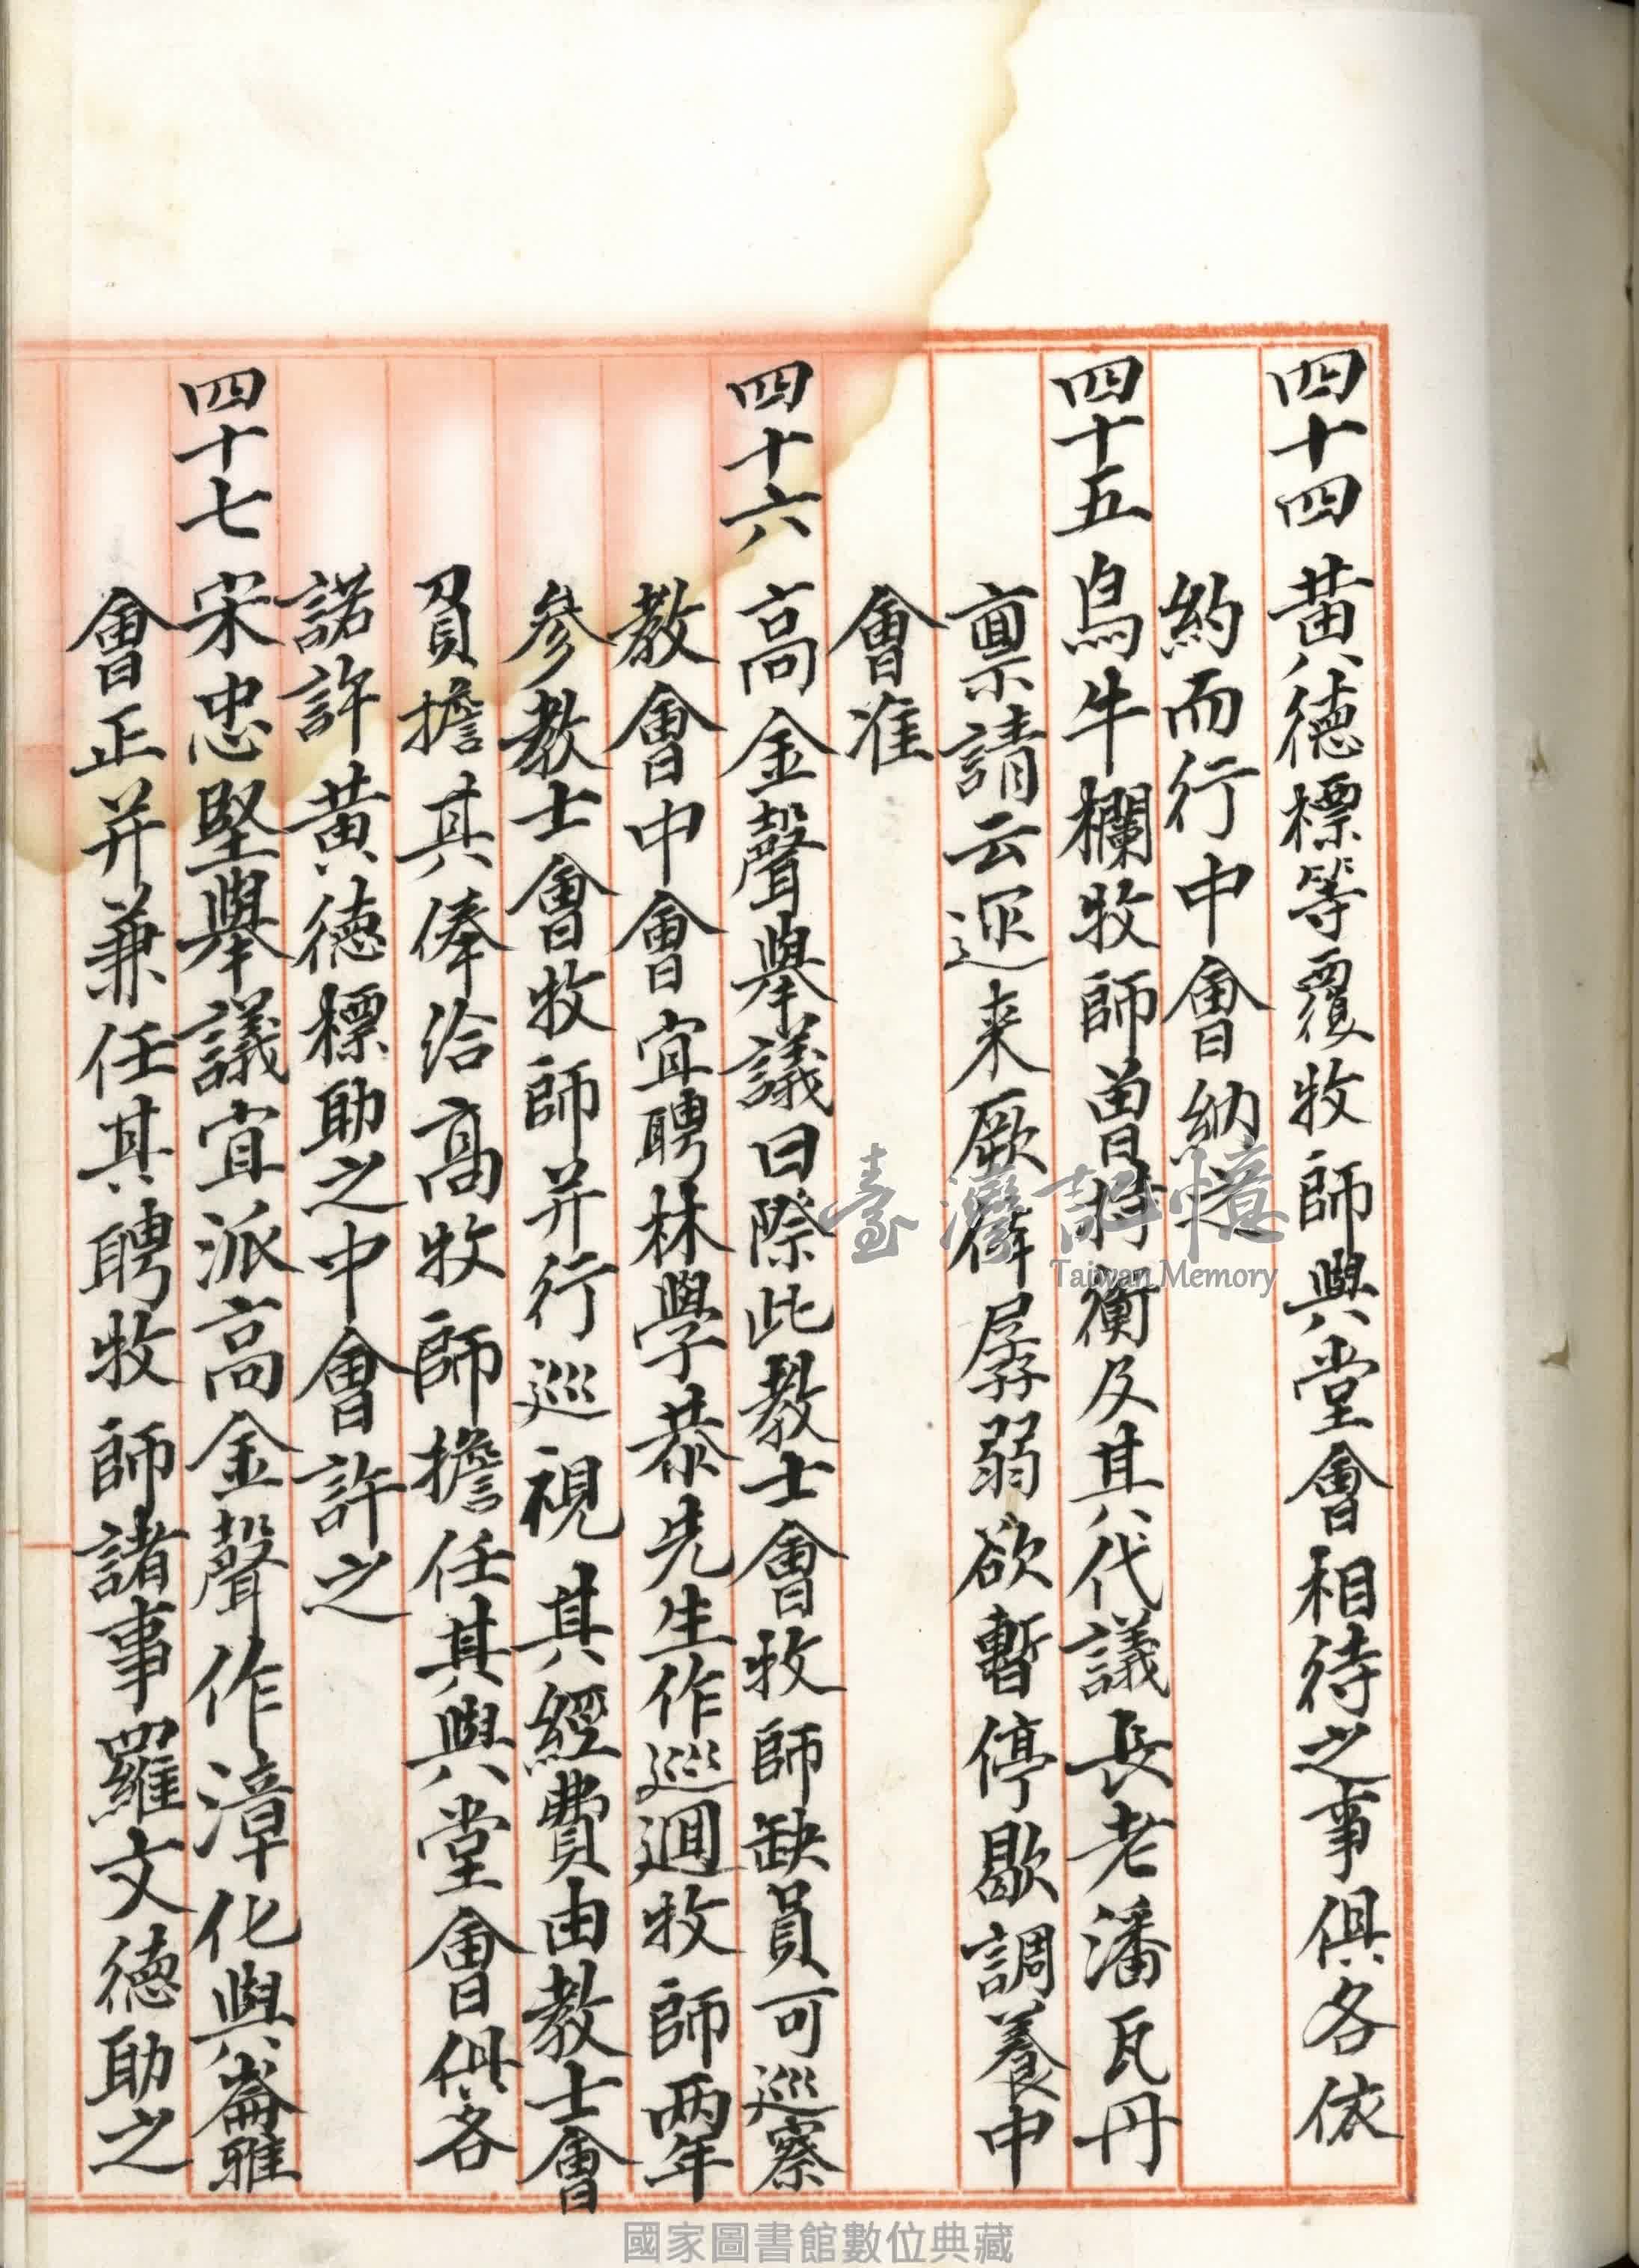 四十四黃德標等覆牧師與堂會相待之事俱各依
約而行中會納之
四十五烏牛欄牧師曾持衡及其代議長老潘瓦丹
稟請云邇来厥軀孱弱欲暫停歇調養中
會准
四十六高金聲舉議曰際此教士會牧師缺員可巡察
教會中會宜聘林學恭先生作巡迴牧師兩年
參教士會牧師并行巡視其經費由教士會
負擔其俸給高牧師擔任其與堂會俱各
諾許黃德標助之中會許之
四十七宋忠堅舉議宜派高金聲作漳化與崙雅
會正并兼任其聘牧師諸事羅文德助之
臺灣記憶
Taiwan Memory
國家圖書館數位典藏